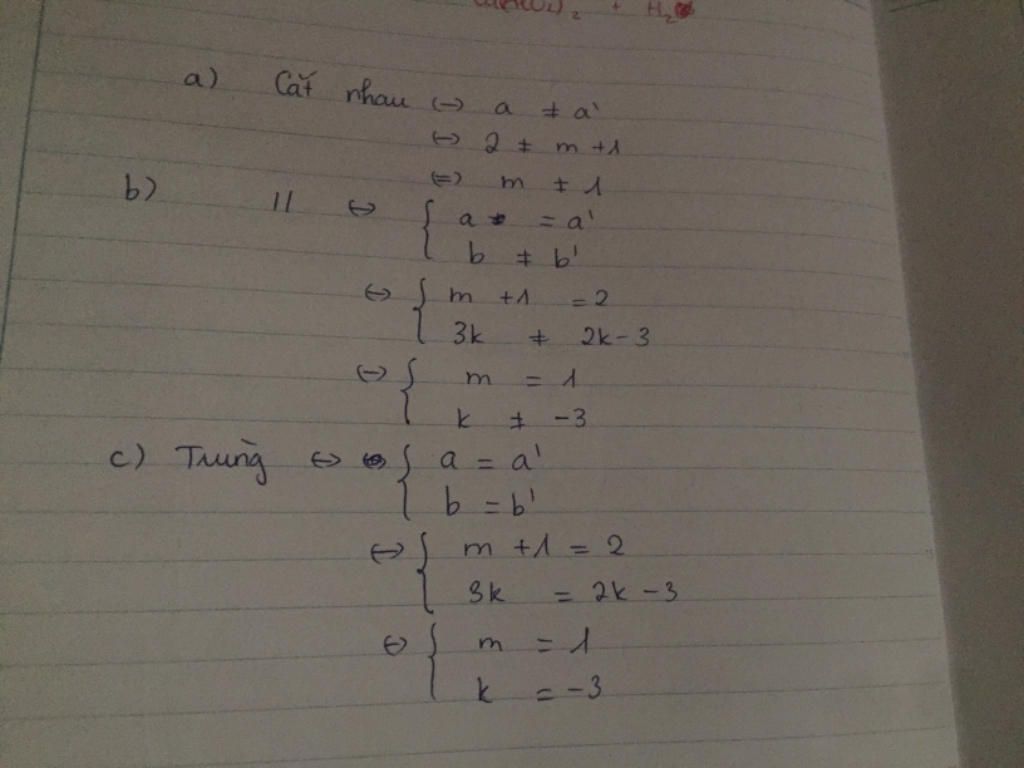 + H₂
a) Cắt nhau <-> a ≠ a'
<-> 2 ≠ m +1
<=> m ≠ 1
b) // <-> { a = a'
b ≠ b'
<-> { m +1 = 2
3k ≠ 2k-3
<-> { m = 1
k ≠ -3
c) Trùng <-> { a = a'
b = b'
<-> { m +1 = 2
3k = 2k -3
<-> { m = 1
k = -3